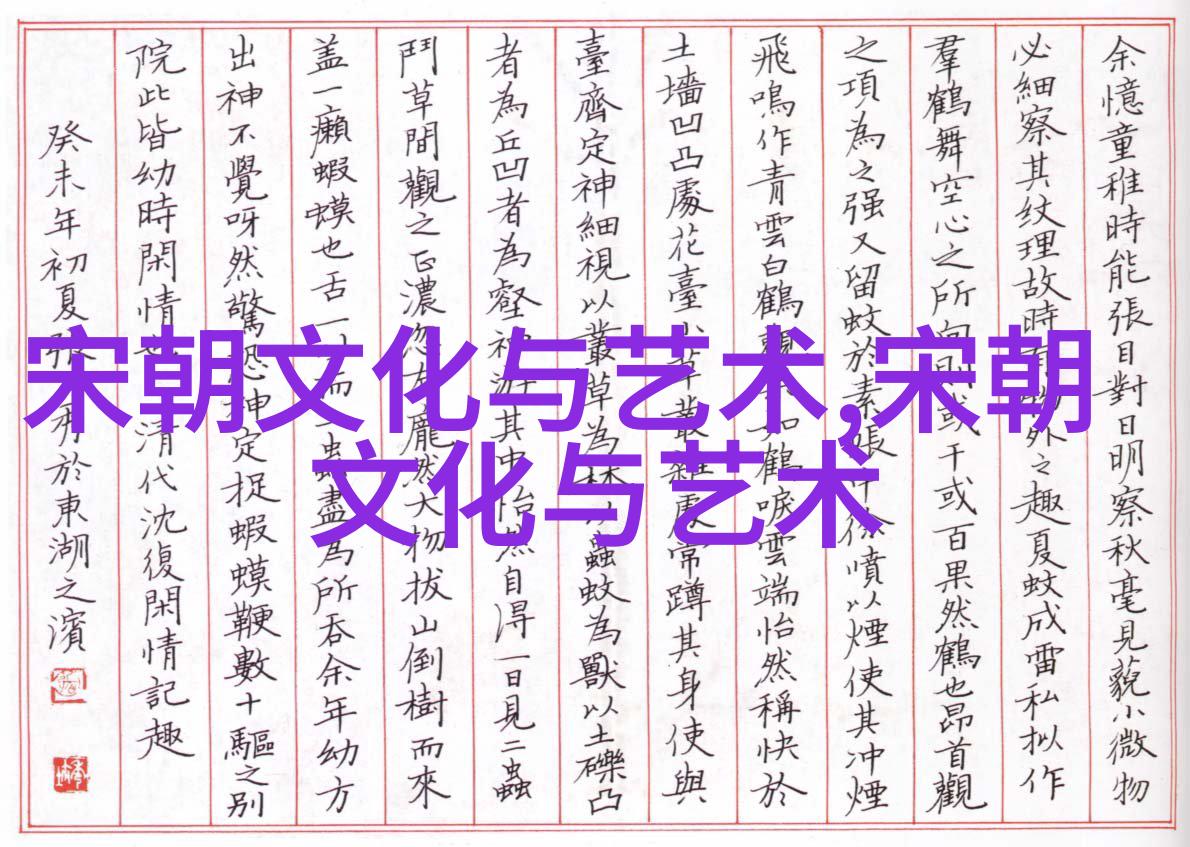 宋朝文化与艺术,宋朝
文化与艺术
余憶童稚時能張目對日明察秋毫見藐小微物
必細察其纹理故時有物外之趣夏蚊成雷私拟作
羣鶴舞空心之所向則或千或百果然鶴也昂首觀
之項為之强又留蚊於素帳中徐噴以煙使其冲煙
飛鳴作青雲白鶴觀果如鶴唳雲端怡然稱快於
土墻凹凸處花臺小草叢雜處常蹲其身使與
臺齊定神細視以叢草為林以蟲蚊為獸以土礫凸
者為丘凹者為壑神游其中怡然自得一日見二蟲
鬥草間觀之正濃忽有龐然大物拔山倒樹而來
盖一癩蝦蟆也舌一吐而二蟲盡為所吞余年幼方
出神不覺呀然驚恐神定捉蝦蟆鞭數十驅之别
院此皆幼時閑情也清代沈復閑情記趣
癸未年初夏張於東湖之濱